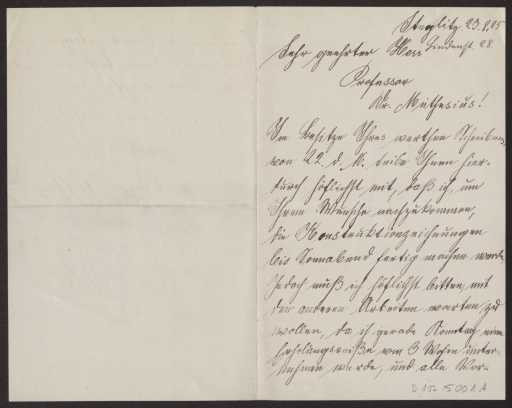 Steglitz 23.8.05
Lindenst 28
Sehr geehrter Herr
Professor
Dr. Muthesius!
Im Besitze Ihres werthen Schreibens
von 22. d. M. teile Ihnen hier-
durch höflichst mit, daß ich, um
Ihrem Wunsche nachzukommen,
die Konstruktionszeichnungen
bis Sonnabend fertig machen werde
Jedoch muß ich höflichst bitten, mit
den anderen Arbeiten warten zu
wollen, da ich gerade Sonntag eine
Erholungsreise von 3 Wochen unter-
nehmen werde, und alle Vor-
D 102 5001 A